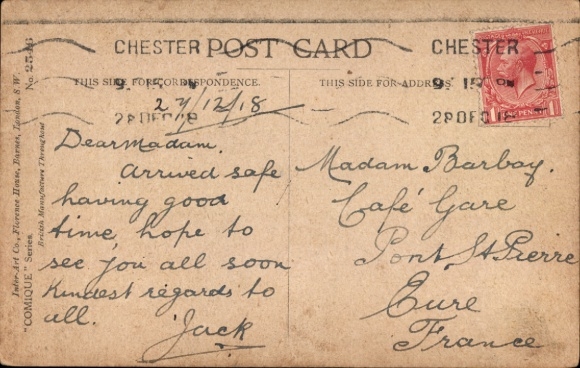 CHESTER POST CARD CHESTER
9 15 PM 9 15 PM
28 DEC 18 28 DEC 18
THIS SIDE FOR CORRESPONDENCE. THIS SIDE FOR ADDRESS
27/12/18
Dear Madam.
Arrived safe
having good
time, hope to
see you all soon
Kindest regards to
all.
Jack
Madam Barbay.
Café Gare
Pont St Pierre
Eure
France
Inter-Art Co., Florence House, Barnes, London, S.W.
"COMIQUE" Series
British Manufacture Throughout
No. 2546
1 PENNY 1